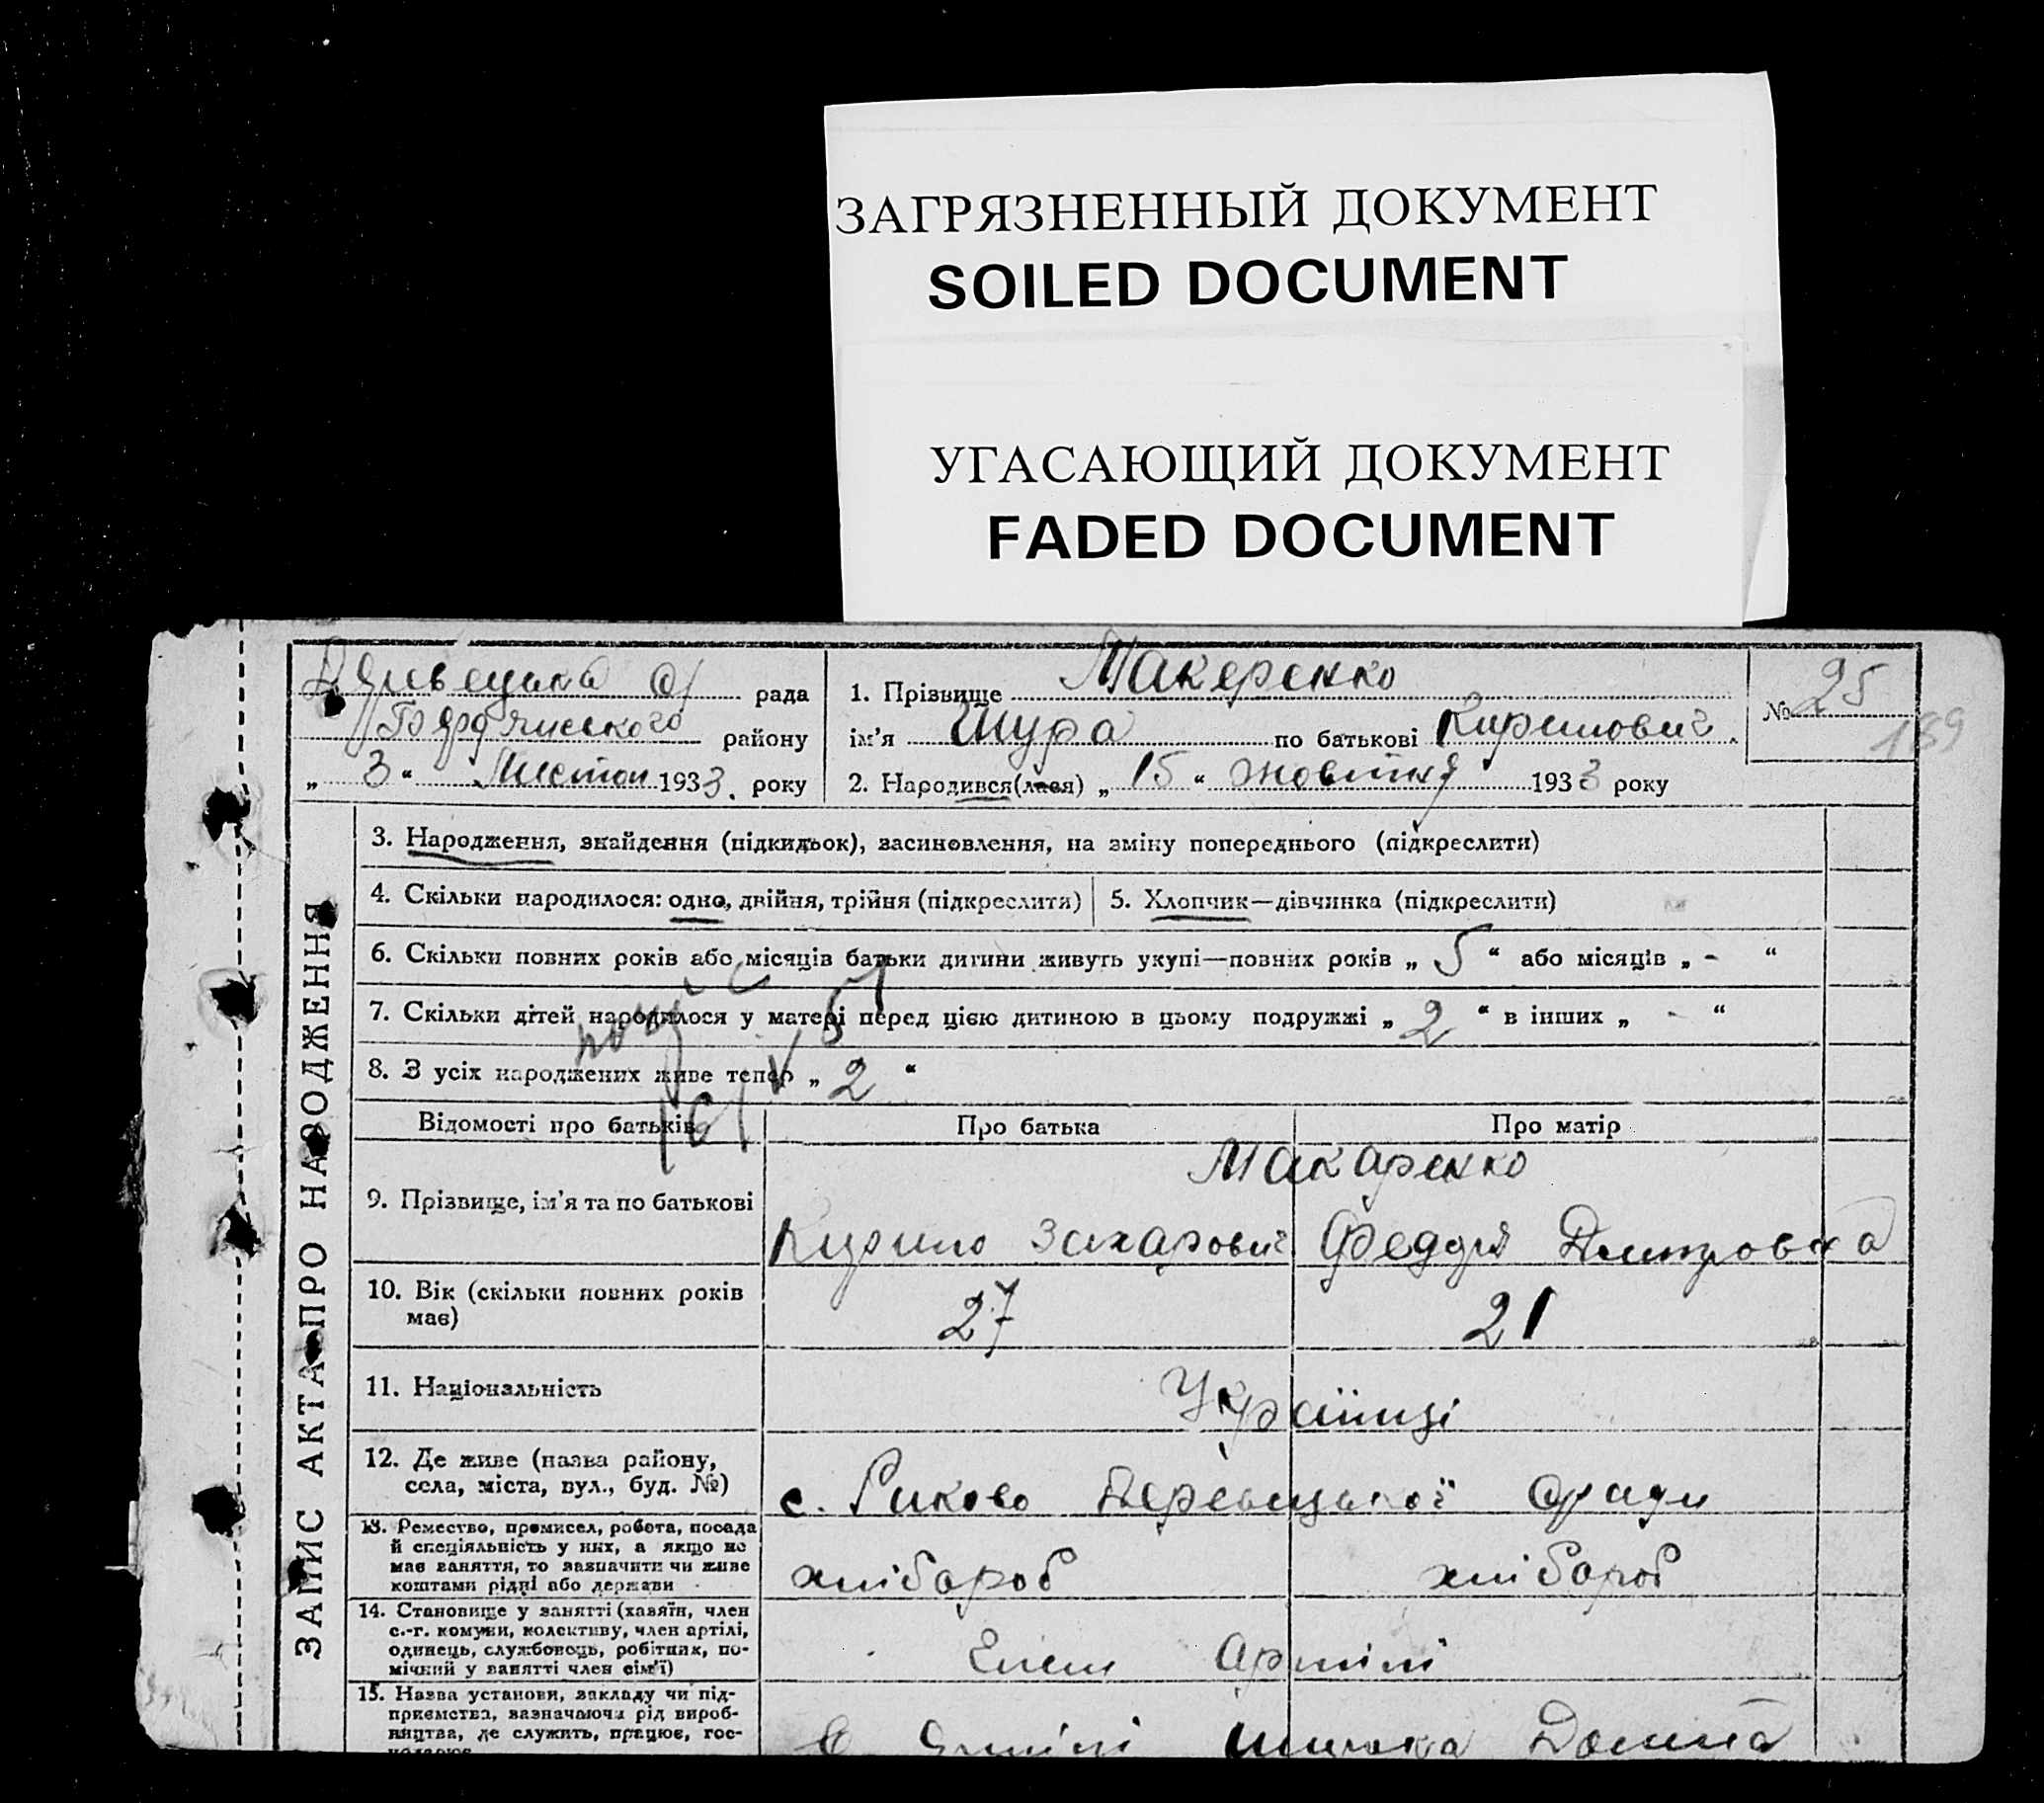 ЗАГРЯЗНЕННЫЙ ДОКУМЕНТ
SOILED DOCUMENT
УГАСАЮЩИЙ ДОКУМЕНТ
FADED DOCUMENT
рада
району
„ 3 “ Листоп 1933. року
1. Прізвище Макаренко
ім'я Шура по батькові Кирилович
2. Народився(лася) „ 15 “ жовтня 1933 року
№ 25
189
ЗАПИС АКТА ПРО НАРОДЖЕННЯ
3. Народження, знайдення (підкидьок), засиновлення, на зміну попереднього (підкреслити)
4. Скільки народилося: одно, двійня, трійня (підкреслити)
5. Хлопчик—дівчинка (підкреслити)
6. Скільки повних років або місяців батьки дитини живуть укупі—повних років „ 5 “ або місяців „ - “
7. Скільки дітей народилося у матері перед цією дитиною в цьому подружжі „ 2 “ в інших „ - “
8. З усіх народжених живе тепер „ 2 “
Відомості про батьків
Про батька
Про матір
Макаренко
9. Прізвище, ім'я та по батькові
Кирило Захарович
Дмитровна
10. Вік (скільки повних років
має)
27
21
11. Національність
Українці
12. Де живе (назва району,
села, міста, вул., буд. №)
с. Риково
13. Ремество, промисел, робота, посада
й спеціяльність у них, а якщо не
має заняття, то зазначити чи живе
коштами рідні або держави
хлібороб
хлібороб
14. Становище у занятті (хазяїн, член
с.-г. комуни, колективу, член артілі,
одинець, службовець, робітник, по-
мічний у занятті член сім'ї)
Член Артілі
15. Назва установи, закладу чи під-
приємства, зазначаючи рід вироб-
ництва, де служить, працює, гос-
Артілі Широка Долина